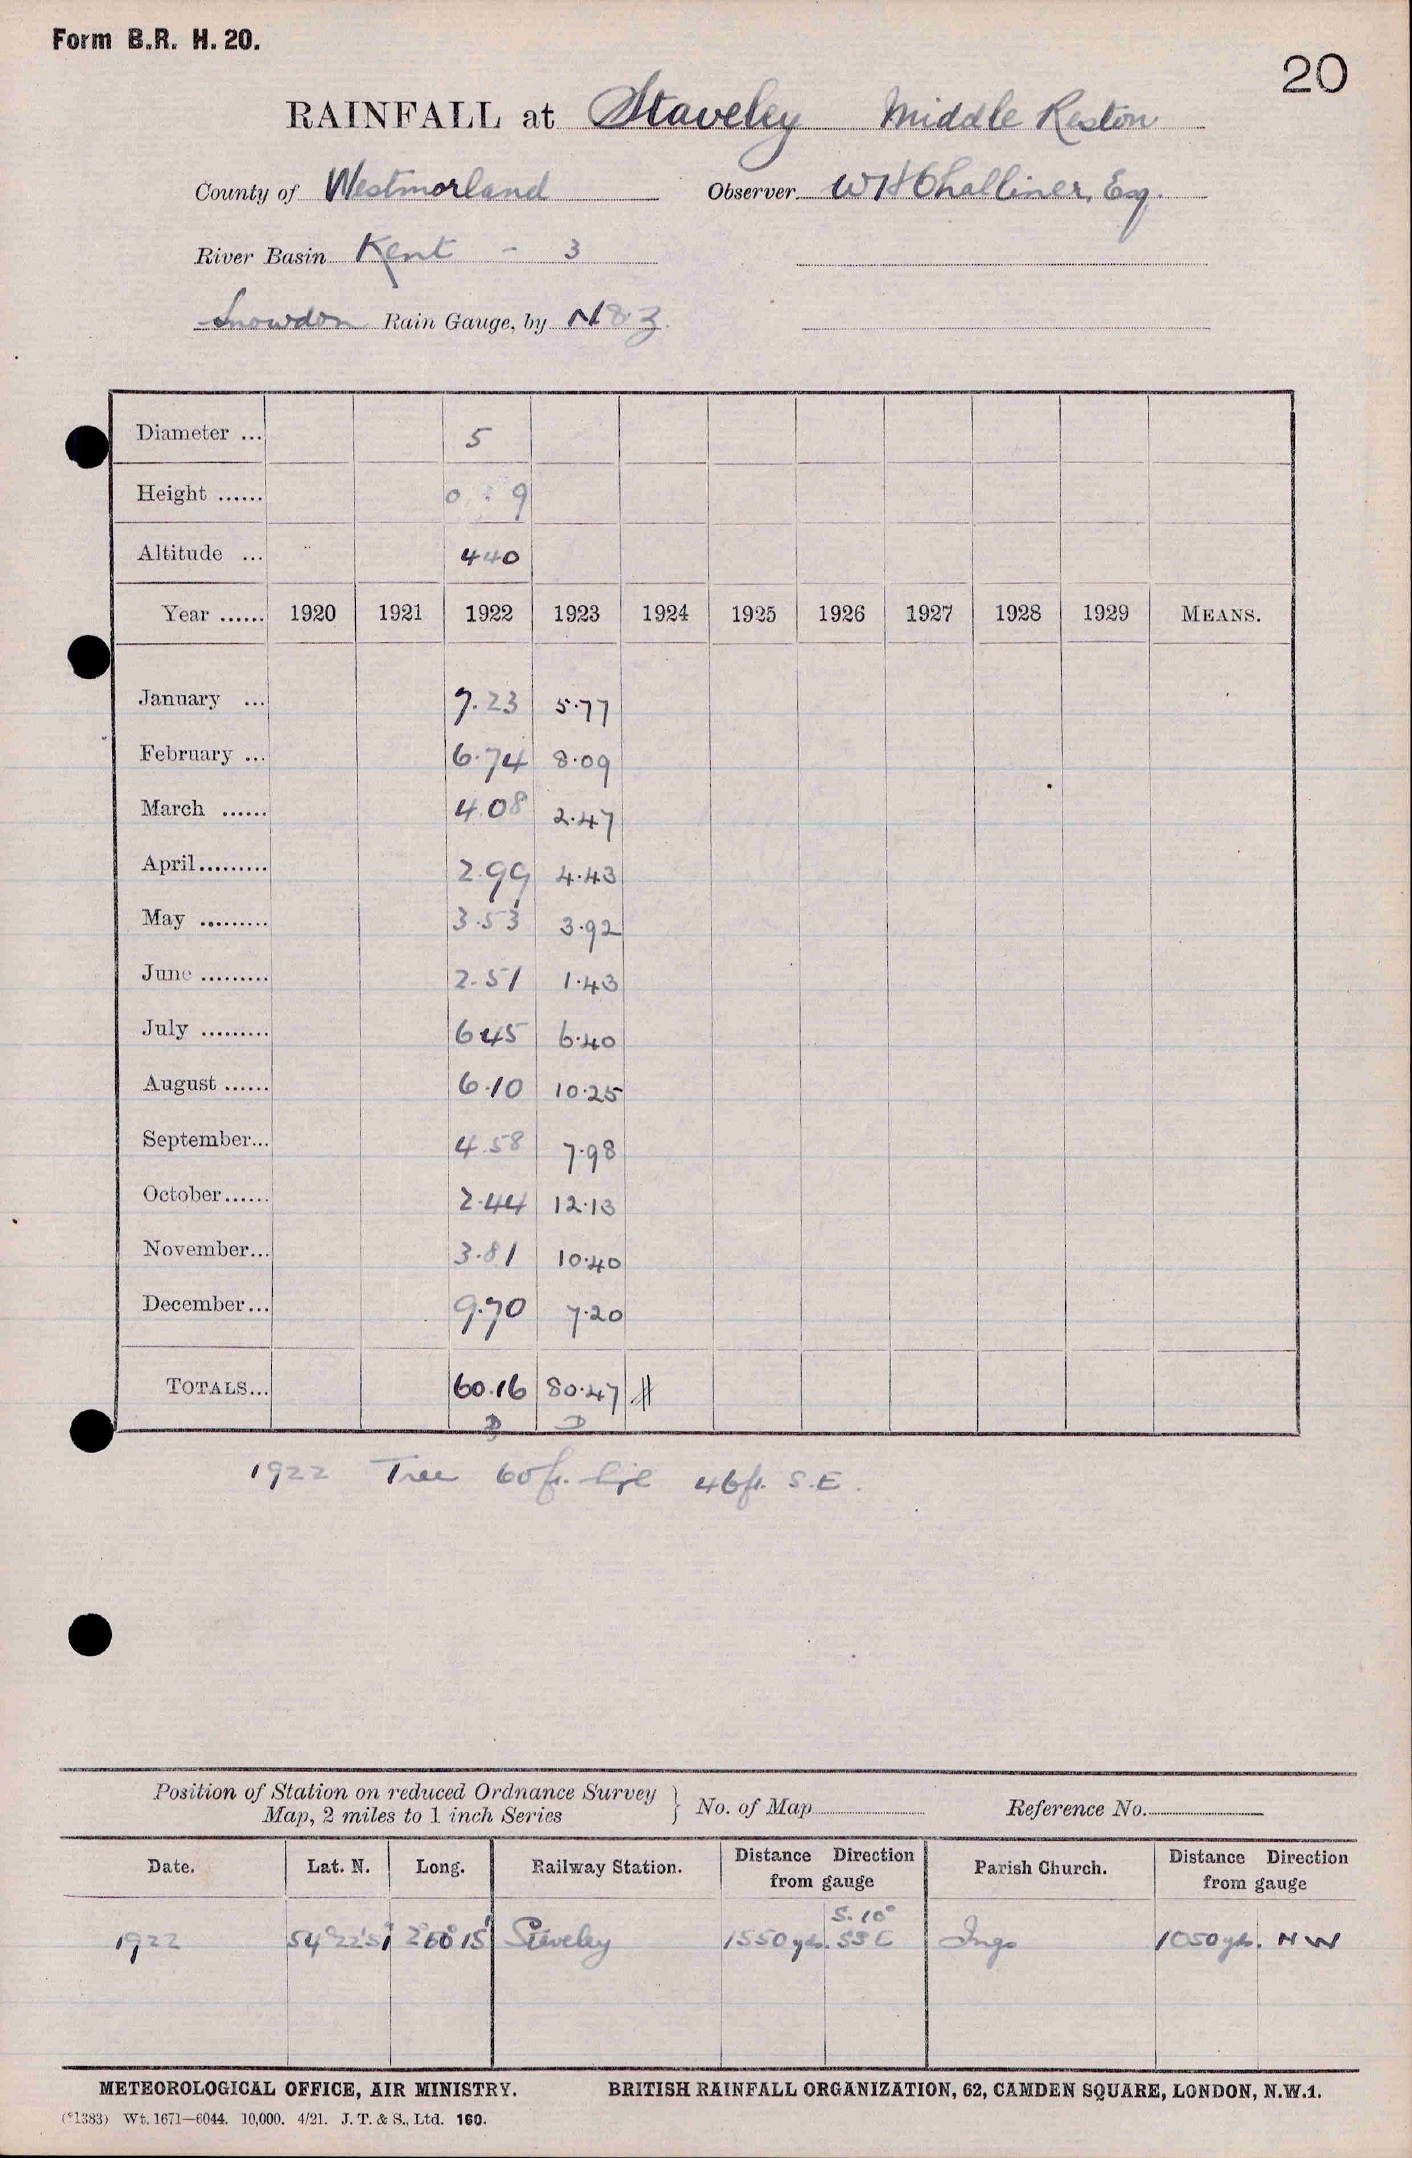 Form B.R. H. 20.
20
RAINFALL at Staveley Middle Reston
County of Westmorland Observer W H Challiner, Esq.
River Basin Kent - 3
Snowdon Rain Gauge, by N & Z.
Diameter ... 5
Height ...... 0 : 9
Altitude ... 440
Year ...... 1920 1921 1922 1923 1924 1925 1926 1927 1928 1929 MEANS.
January ... 7.23 5.77
February ... 6.74 8.09
March ...... 4.08 2.47
April......... 2.99 4.43
May ......... 3.53 3.92
June ......... 2.51 1.43
July ......... 6.45 6.40
August ...... 6.10 10.25
September... 4.58 7.98
October...... 2.44 12.13
November... 3.81 10.40
December... 9.70 7.20
TOTALS... 60.16 80.47 #
D D
1922 Tree 60ft. 46ft. S.E.
Position of Station on reduced Ordnance Survey Map, 2 miles to 1 inch Series } No. of Map Reference No.
Date. Lat. N. Long. Railway Station. Distance Direction from gauge Parish Church. Distance Direction from gauge
S. 10°
1922 54° 22' 51" 2° 50' 15" Staveley 1550 yds. SSE Ings 1050 yds. NW
METEOROLOGICAL OFFICE, AIR MINISTRY. BRITISH RAINFALL ORGANIZATION, 62, CAMDEN SQUARE, LONDON, N.W.1.
(*1383) Wt. 1671—6044. 10,000. 4/21. J. T. & S., Ltd. 160.